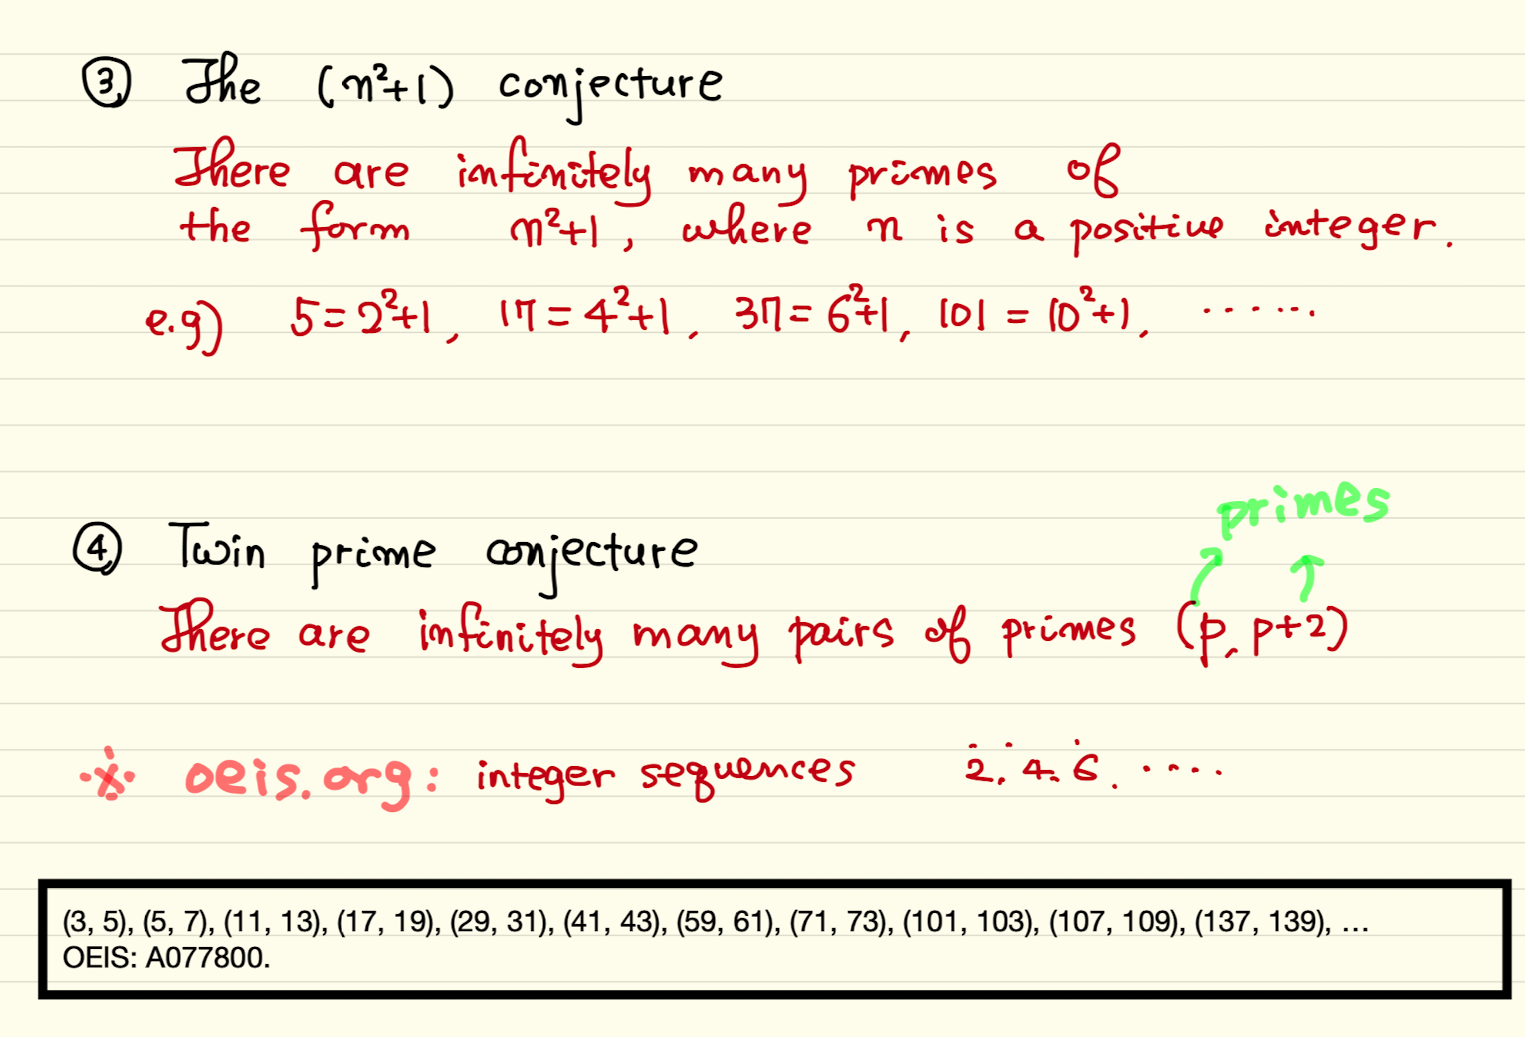 ③ The (n²+1) conjecture
There are infinitely many primes of
the form n²+1, where n is a positive integer.
e.g) 5=2²+1, 17=4²+1, 37=6²+1, 101=10²+1, ......
primes
④ Twin prime conjecture
There are infinitely many pairs of primes (p, p+2)
※ oeis.org: integer sequences 2, 4, 6, ....
(3, 5), (5, 7), (11, 13), (17, 19), (29, 31), (41, 43), (59, 61), (71, 73), (101, 103), (107, 109), (137, 139), …
OEIS: A077800.